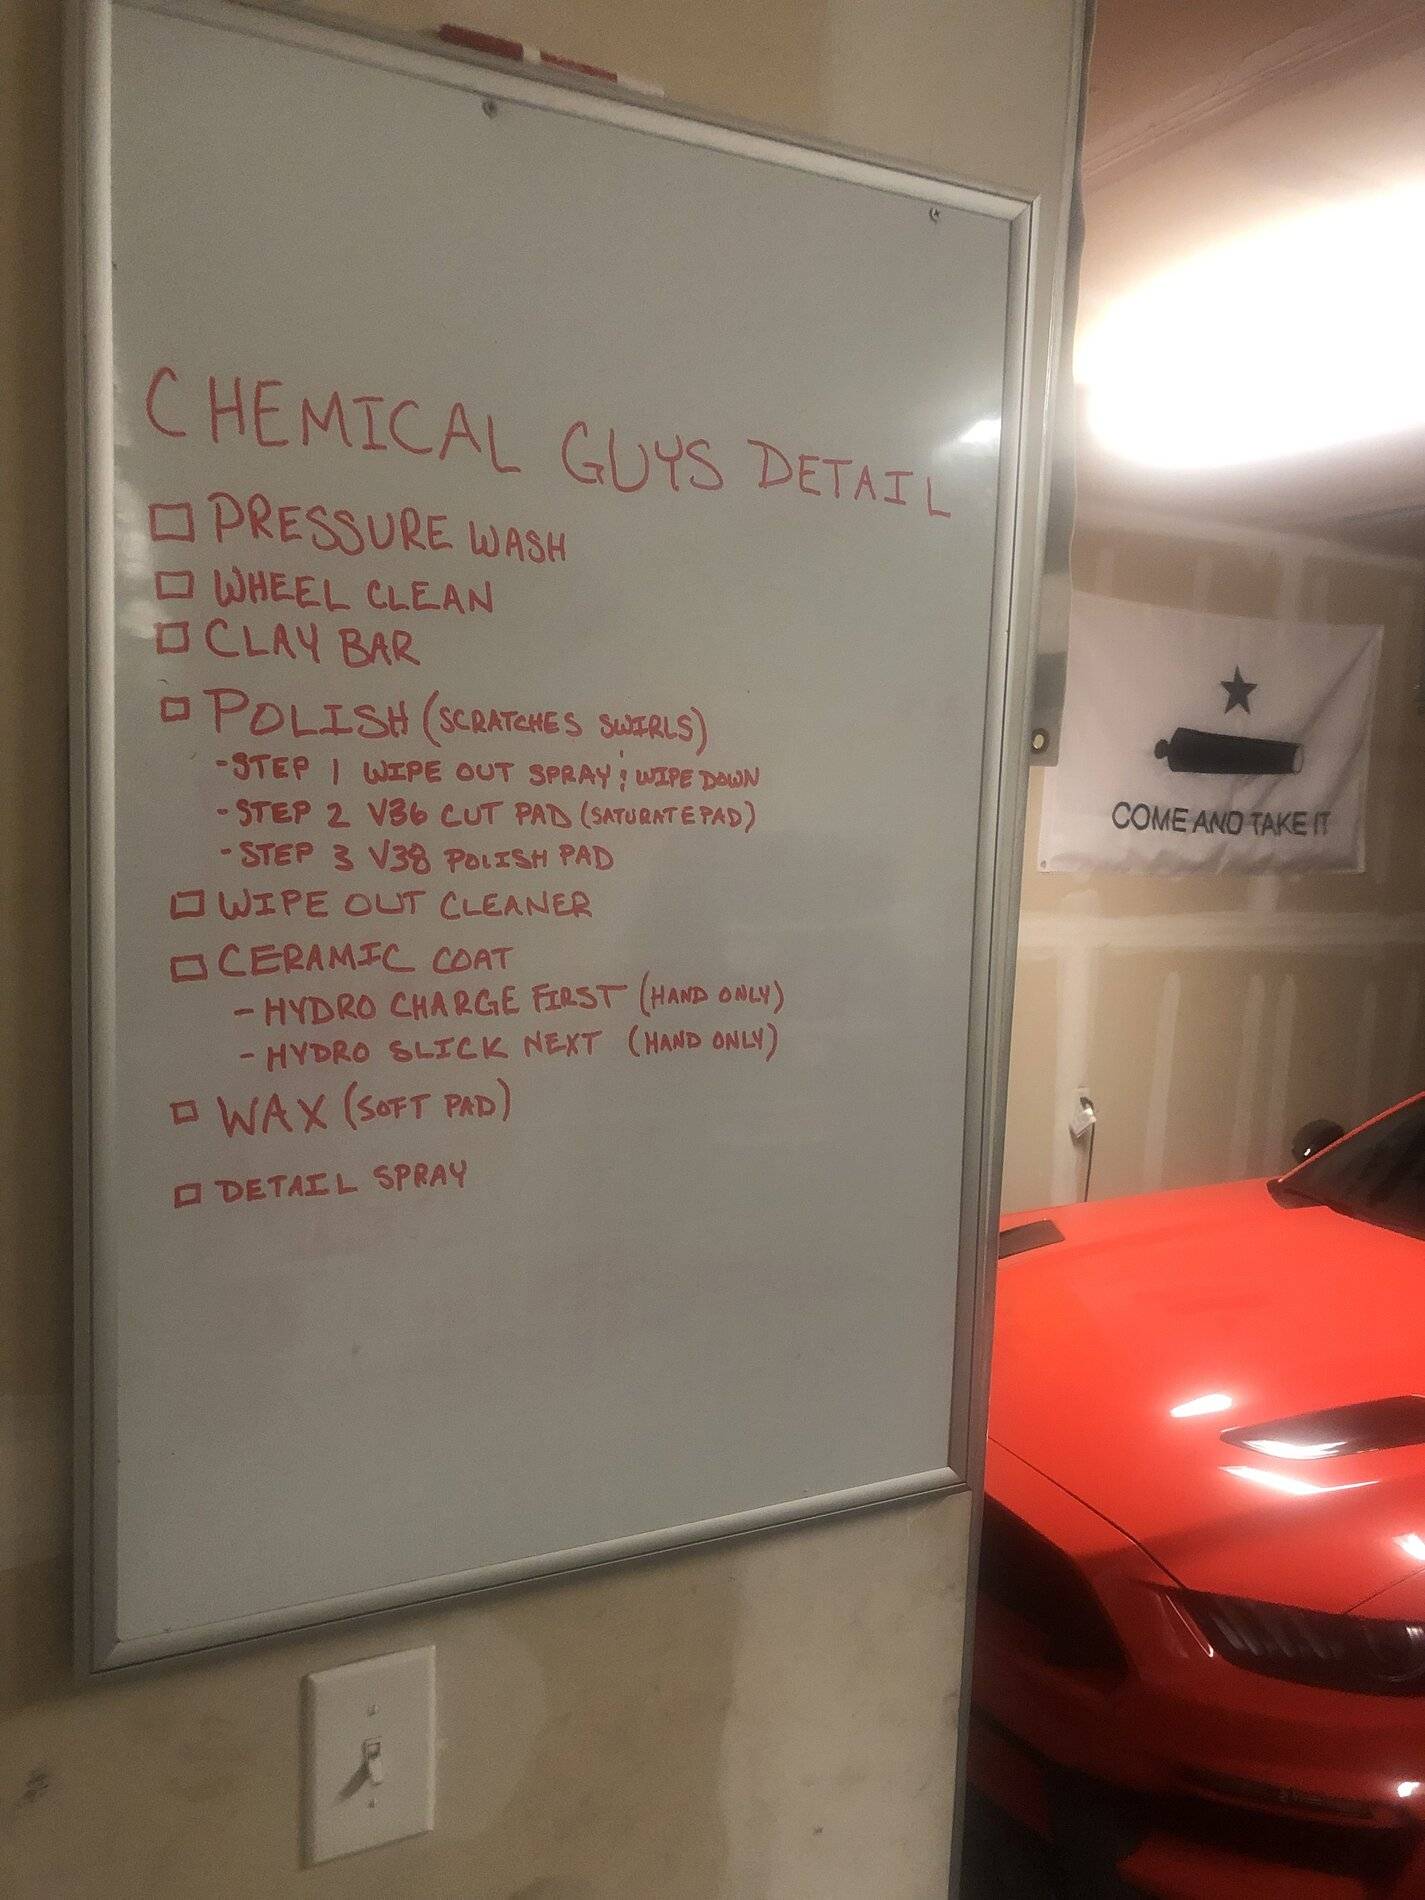 CHEMICAL GUYS DETAIL
PRESSURE WASH
WHEEL CLEAN
CLAY BAR
POLISH (SCRATCHES SWIRLS)
-STEP 1 WIPE OUT SPRAY ; WIPE DOWN
-STEP 2 V36 CUT PAD (SATURATE PAD)
-STEP 3 V38 POLISH PAD
WIPE OUT CLEANER
CERAMIC COAT
- HYDRO CHARGE FIRST (HAND ONLY)
- HYDRO SLICK NEXT (HAND ONLY)
WAX (SOFT PAD)
DETAIL SPRAY
COME AND TAKE IT